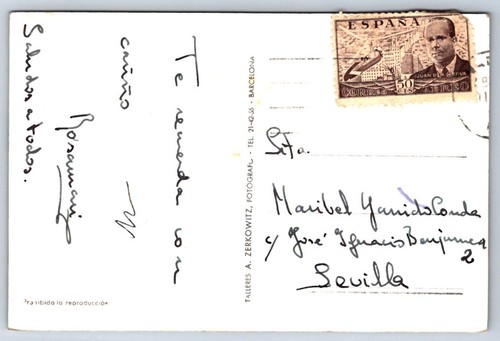 Te recuerda con
cariño
Rosamari
Saludos a todos.
Prohibida la reproducción
TALLERES A. ZERKOWITZ, FOTOGRAFO - TEL. 21-42-35 - BARCELONA
ESPAÑA
JUAN DE LA CIERVA
CORREO AEREO
50
Srta.
Maribel Garrido Conde
c/ José Ignacio Benjumea
2
Sevilla